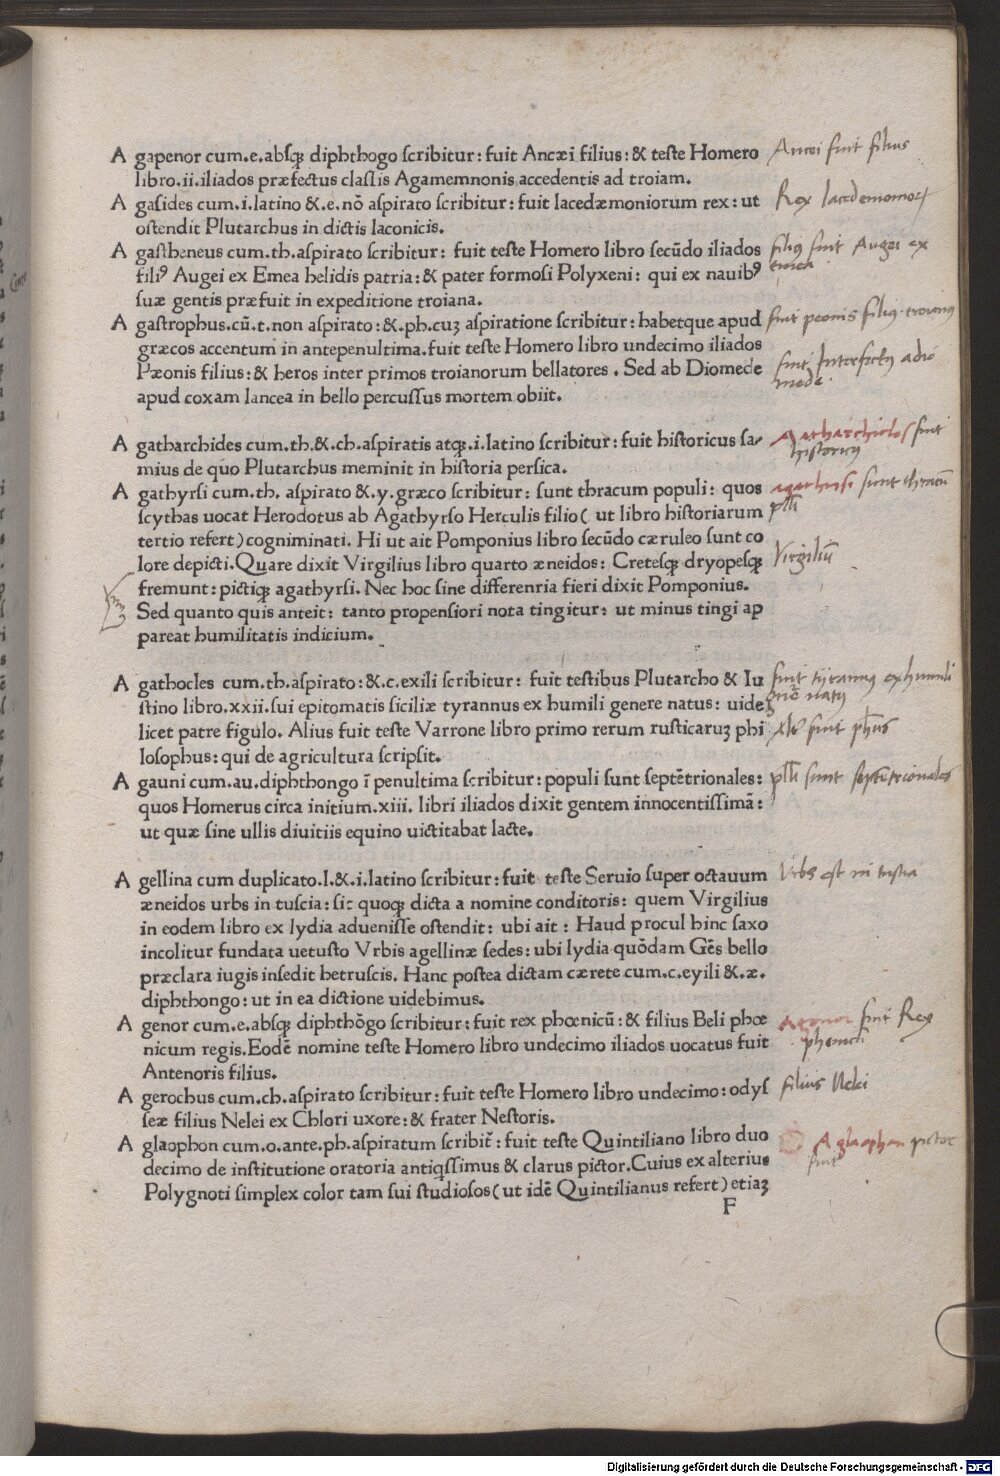 A gapenor cum.e.absqꝫ diphthõgo scribitur: fuit Ancæi filius: & teste Homero
libro.ii.iliados præfectus classis Agamemnonis accedentis ad troiam.
A gasides cum.i.latino &.e.nõ aspirato scribitur: fuit lacedæmoniorum rex: ut
ostendit Plutarchus in dictis laconicis.
A gastheneus cum.th.aspirato scribitur: fuit teste Homero libro secũdo iliados
filiꝰ Augei ex Emea helidis patria: & pater formosi Polyxeni: qui ex nauibꝰ
suæ gentis præfuit in expeditione troiana.
A gastrophus.cũ.t.non aspirato: &.ph.cuꝫ aspiratione scribitur: habetque apud
græcos accentum in antepenultima.fuit teste Homero libro undecimo iliados
Pæonis filius: & heros inter primos troianorum bellatores. Sed ab Diomede
apud coxam lancea in bello percussus mortem obiit.
A gatharchides cum.th.&.ch.aspiratis atqꝫ.i.latino scribitur: fuit historicus sa-
mius de quo Plutarchus meminit in historia persica.
A gathyrsi cum.th. aspirato &.y.græco scribitur: sunt thracum populi: quos
scythas uocat Herodotus ab Agathyrso Herculis filio( ut libro historiarum
tertio refert) cogniminati. Hi ut ait Pomponius libro secũdo cæruleo sunt co
lore depicti.Quare dixit Virgilius libro quarto æneidos: Cretesqꝫ dryopesqꝫ
fremunt: pictiqꝫ agathyrsi. Nec hoc sine differenria fieri dixit Pomponius.
Sed quanto quis anteit: tanto propensiori nota tingitur: ut minus tingi ap
pareat humilitatis indicium.
A gathocles cum.th.aspirato: &.c.exili scribitur: fuit testibus Plutarcho & Iu
stino libro.xxii.sui epitomatis siciliæ tyrannus ex humili genere natus: uide
licet patre figulo. Alius fuit teste Varrone libro primo rerum rusticaruꝫ phi
losophus: qui de agricultura scripsit.
A gauni cum.au.diphthongo ĩ penultima scribitur: populi sunt septẽtrionales:
quos Homerus circa initium.xiii. libri iliados dixit gentem innocentissimã:
ut quæ sine ullis diuitiis equino uictitabat lacte.
A gellina cum duplicato.l.&.i.latino scribitur: fuit teste Seruio super octauum
æneidos urbs in tuscia: sic quoqꝫ dicta a nomine conditoris: quem Virgilius
in eodem libro ex lydia aduenisse ostendit: ubi ait : Haud procul hinc saxo
incolitur fundata uetusto Vrbis agellinæ sedes: ubi lydia quõdam Gẽs bello
præclara iugis insedit hetruscis. Hanc postea dictam cærete cum.c.eyili &.æ.
diphthongo: ut in ea dictione uidebimus.
A genor cum.e.absqꝫ diphthõgo scribitur: fuit rex phœnicũ: & filius Beli phœ
nicum regis.Eodẽ nomine teste Homero libro undecimo iliados uocatus fuit
Antenoris filius.
A gerochus cum.ch.aspirato scribitur: fuit teste Homero libro undecimo: odys
seæ filius Nelei ex Chlori uxore: & frater Nestoris.
A glaophon cum.o.ante.ph.aspiratum scribit̃: fuit teste Quintiliano libro duo
decimo de institutione oratoria antiqssimus & clarus pictor.Cuius ex alterius
Polygnoti simplex color tam sui studiosos( ut idẽ Quintilianus refert) etiaꝫ
F
Ancei fuit filius
Rex lacedemonioꝝ
filiꝰ fuit Augei ex
emea
fuit peonis filiꝰ troianꝰ
fuit Interfectꝰ a dio
mede
Agatharchides fuit
historicꝰ
agathirsi sunt thracũ
ppli
Virgiliũ
fuit tyrannꝰ ex humili
natꝰ
fuit phꝰs
ppli sunt septẽtrionales
Vrbs est in tuscia
Agenor fuit Rex
phenicũ
filius Nelei
Aglaophon pictor
fuit
Digitalisierung gefördert durch die Deutsche Forschungsgemeinschaft - DFG